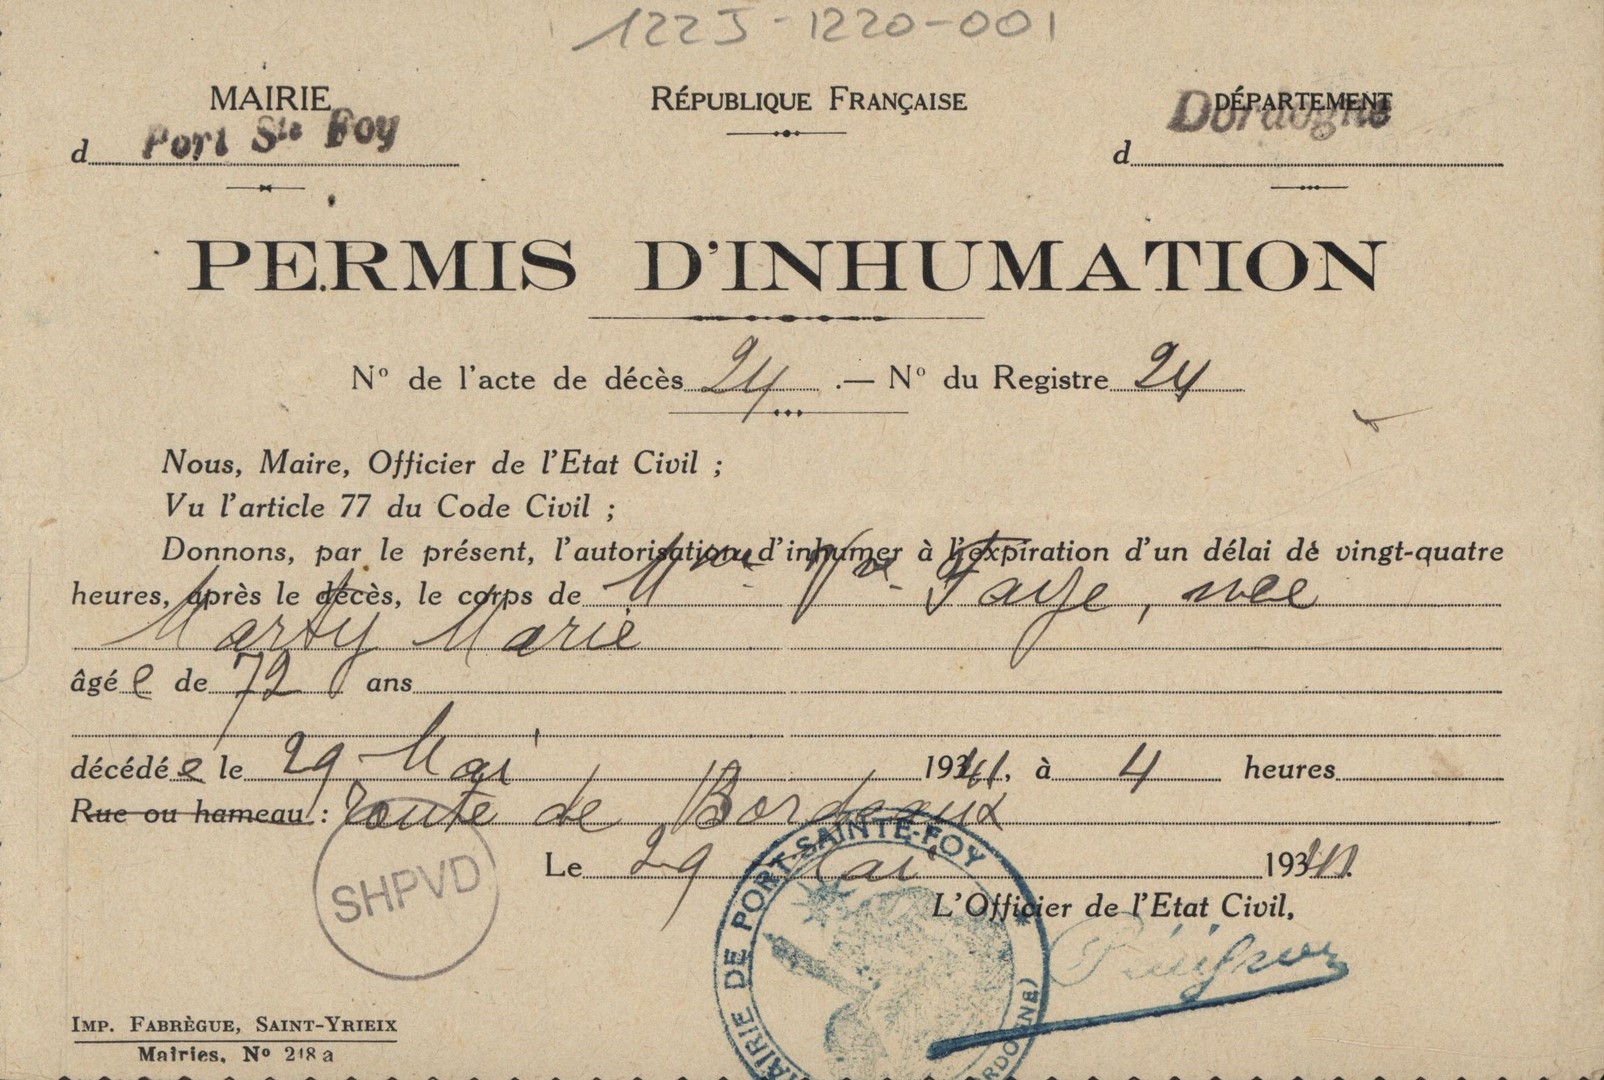 122J-1220-001
MAIRIE
d Port Ste Foy
RÉPUBLIQUE FRANÇAISE
DÉPARTEMENT
d Dordogne
PERMIS D'INHUMATION
No de l'acte de décès 24 .— No du Registre 24
Nous, Maire, Officier de l'Etat Civil ;
Vu l'article 77 du Code Civil ;
Donnons, par le présent, l'autorisation d'inhumer à l'expiration d'un délai de vingt-quatre
heures, après le décès, le corps de Mme Vve Faye, née
Marty Marie
âgé e de 72 ans
décédé e le 29 Mai 1941, à 4 heures
Rue ou hameau : Route de Bordeaux
Le 29 Mai 1941.
L'Officier de l'Etat Civil,
SHPVD
MAIRIE DE PORT-SAINTE-FOY
(DORDOGNE)
IMP. FABRÈGUE, SAINT-YRIEIX
Mairies. No 218 a